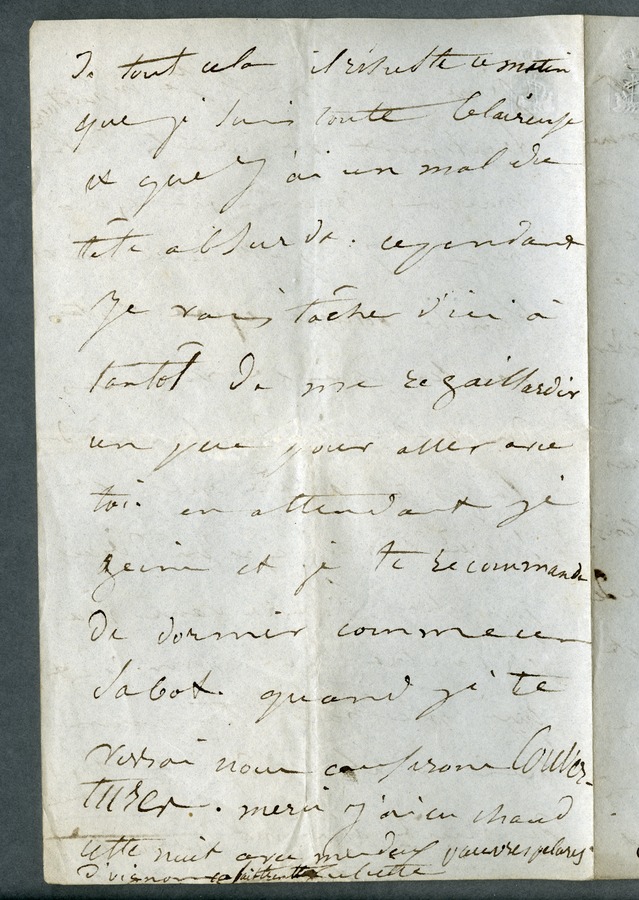 De tout cela il résulte ce matin
que je suis toute blaireuse
et que j'ai un mal de
tête absurde. cependant
je vais tâcher d'ici à
tantôt de me regaillardir
un peu pour aller avec
toi. en attendant je
geins et je te recommande
de dormir comme un
sabot. quand je te
verrai nous causerons Couver-
tures. merci j'ai eu chaud
cette nuit avec mes deux pauvres pelures
d'oignon